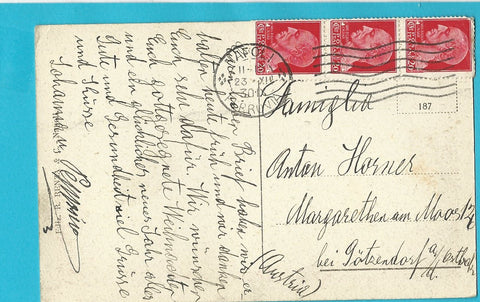 Euren lieben Brief haben wir er
halten heute früh und wir danken
Euch sehr dafür. Wir wünschen
Euch gottgesegnete Weihnachten
und ein glückliches neues Jahr alles
Gute und Gesundheit viel Grüsse
und Küsse
Johanna
187
Famiglia
Anton Horner
Margarethen am Moos
bei Götzendorf a/
(Austria)